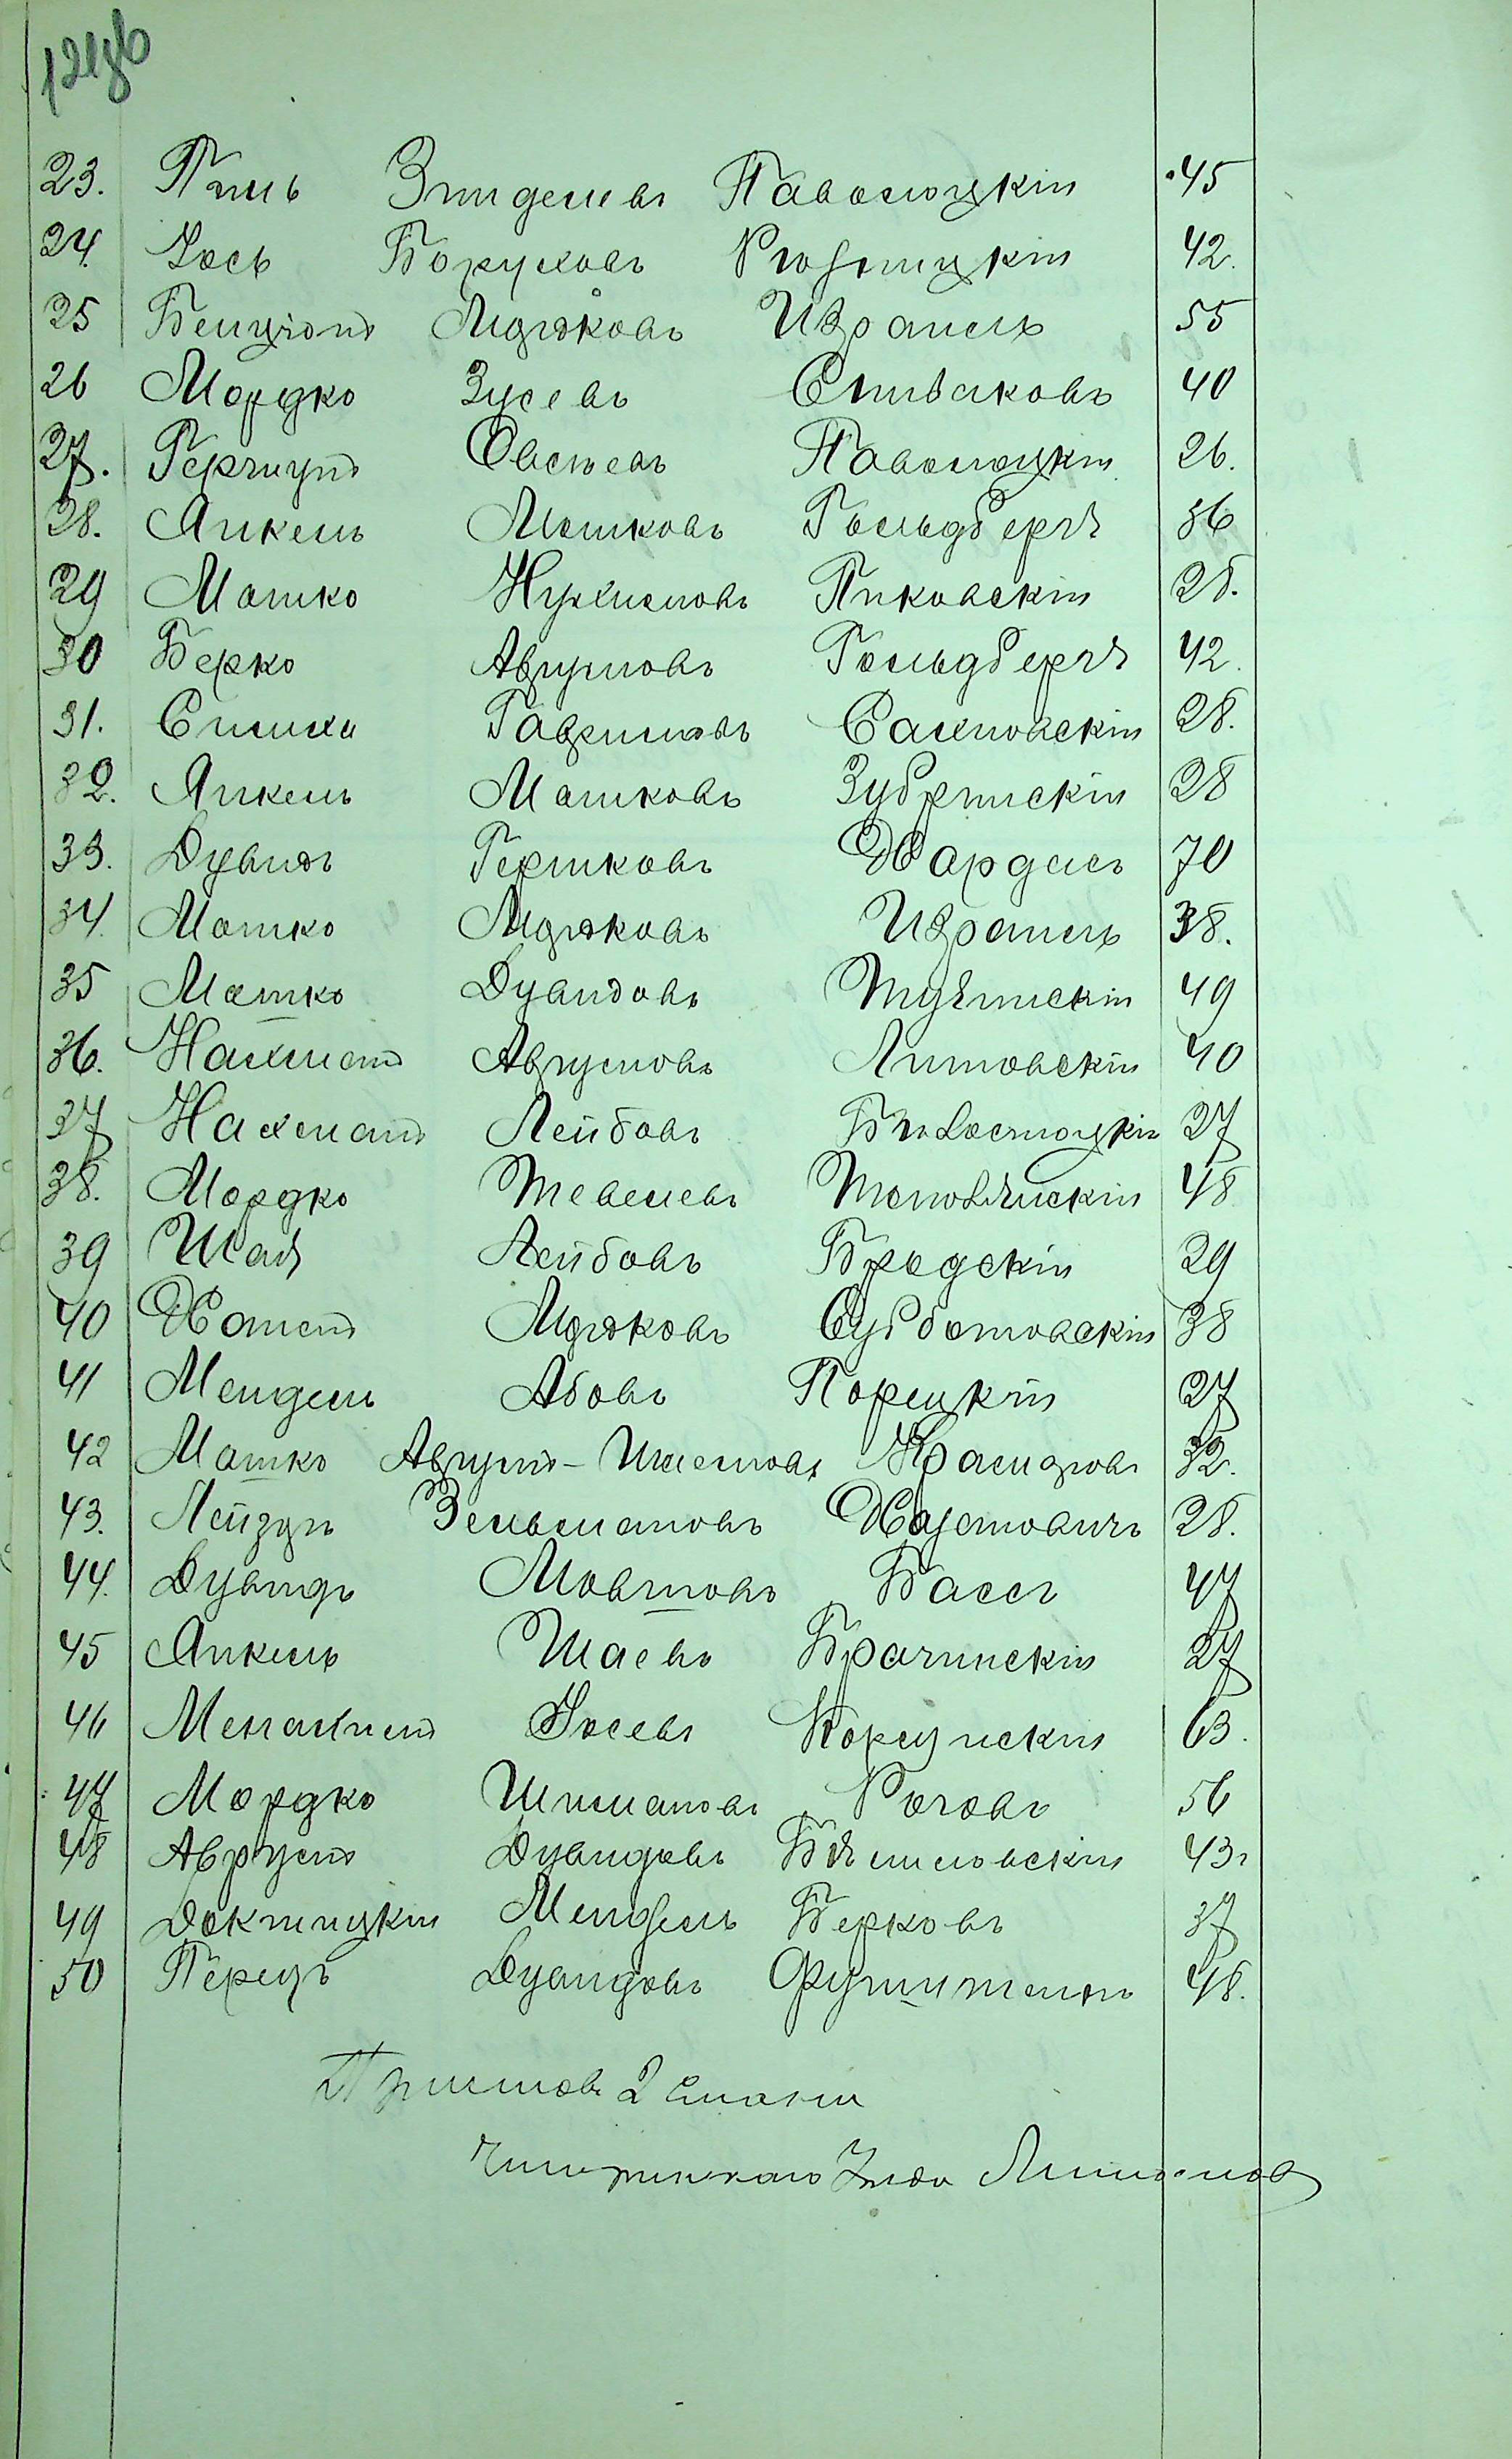 23. Пинь Зинделевъ Паволоцкій 45
24. Іось Боруховъ Рогрицкій 42.
25 Бенціонъ Мошковъ Израиль 55
26 Мордко Зусевъ Спиваковъ 40
27. Герщунъ Овсѣевъ Паволоцкій 26.
28. Янкель Мошковъ Гольдбергъ 36
29 Мошко Нухимовъ Пиковскій 28.
30 Берко Аврумовъ Гольдбергъ 42.
31. Симха Гавриловъ Сахновскій 28.
32. Янкель Мошковъ Зубринскій 28
33. Дувидъ Гершковъ Жарданъ 70
34. Мошко Мошковъ Израиль 38.
35 Мошко Дувидовъ Тубинскій 49
36. Нахманъ Аврумовъ Литовскій 40
37 Нахманъ Лейбовъ Бѣлостоцкій 27
38. Мордко Тевелевъ Тополянскій 48
39 Шая Лейбовъ Бродскій 29
40 Хаимъ Мошковъ Субботовскій 38
41 Мендель Абовъ Порецкій 27
42 Мошко Аврумъ-Ицковъ 32.
43. Лейзоръ Зельмановъ Хаймовичъ 28.
44. Дувидъ Мовшовъ Бассъ 47
45 Янкель Шаевъ Брагинскій 27
46 Менахимъ Іосевъ Корсунскій 63.
47 Мордко Шимановъ Роговъ 56
48 Аврумъ Дувидовъ Бѣлиловскій 43.
49 Докшицкій Мендель Берковъ 37
50 Перецъ Дувидовъ Фруштейнъ 48.
Приставъ 2 стана
Чигиринскаго Уѣзда